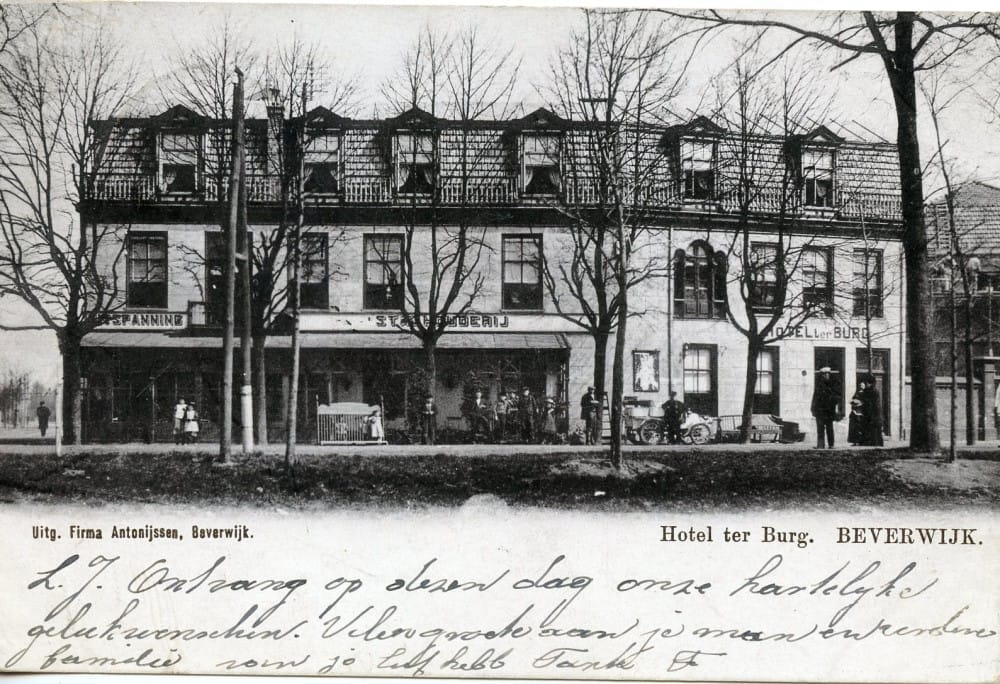 SPANNING
STALHOUDERIJ
HOTEL ter BURG
Uitg. Firma Antonijssen, Beverwijk.
Hotel ter Burg. BEVERWIJK.
L. J. Ontvang op dezen dag onze hartelijke
gelukwenschen. Vele groete aan je man en verdere
familie van je liefhebb Tante F